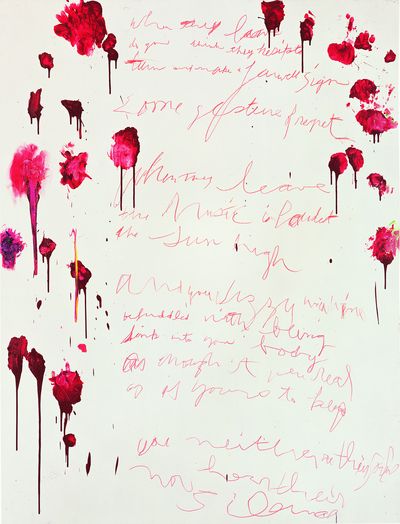 When they leave
do you think they hesitate
turn and make a farewell sign
Some gesture of regret
When they leave
the Music is loudest
the Sun high
and you dizzy with wine
befuddled with being
sink into your body
as though it were real
as if yours to keep
you neither see their going
nor hear their
Silence